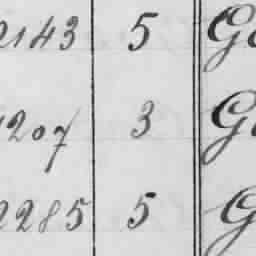 2143 5 Ge
1207 3 Ge
2285 5 G